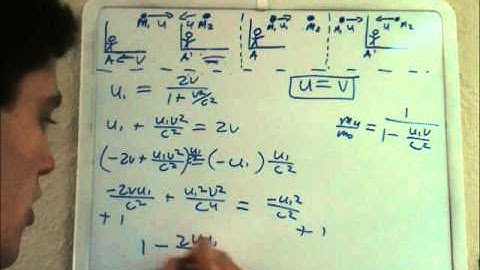 M₁ u u M₂ M₁ M₂ M₁ u M₂
A ← V A' A A'
u₁ = 2v / (1 + v²/c²) u = v
u₁ + u₁v²/c² = 2v m_u/m₀ = 1 / (1 - u₁v/c²)
(-2v + u₁v²/c²) u₁/c² = (-u₁) u₁/c²
-2vu₁/c² + u₁²v²/c⁴ = -u₁²/c²
+1 +1
1 - 2vu₁